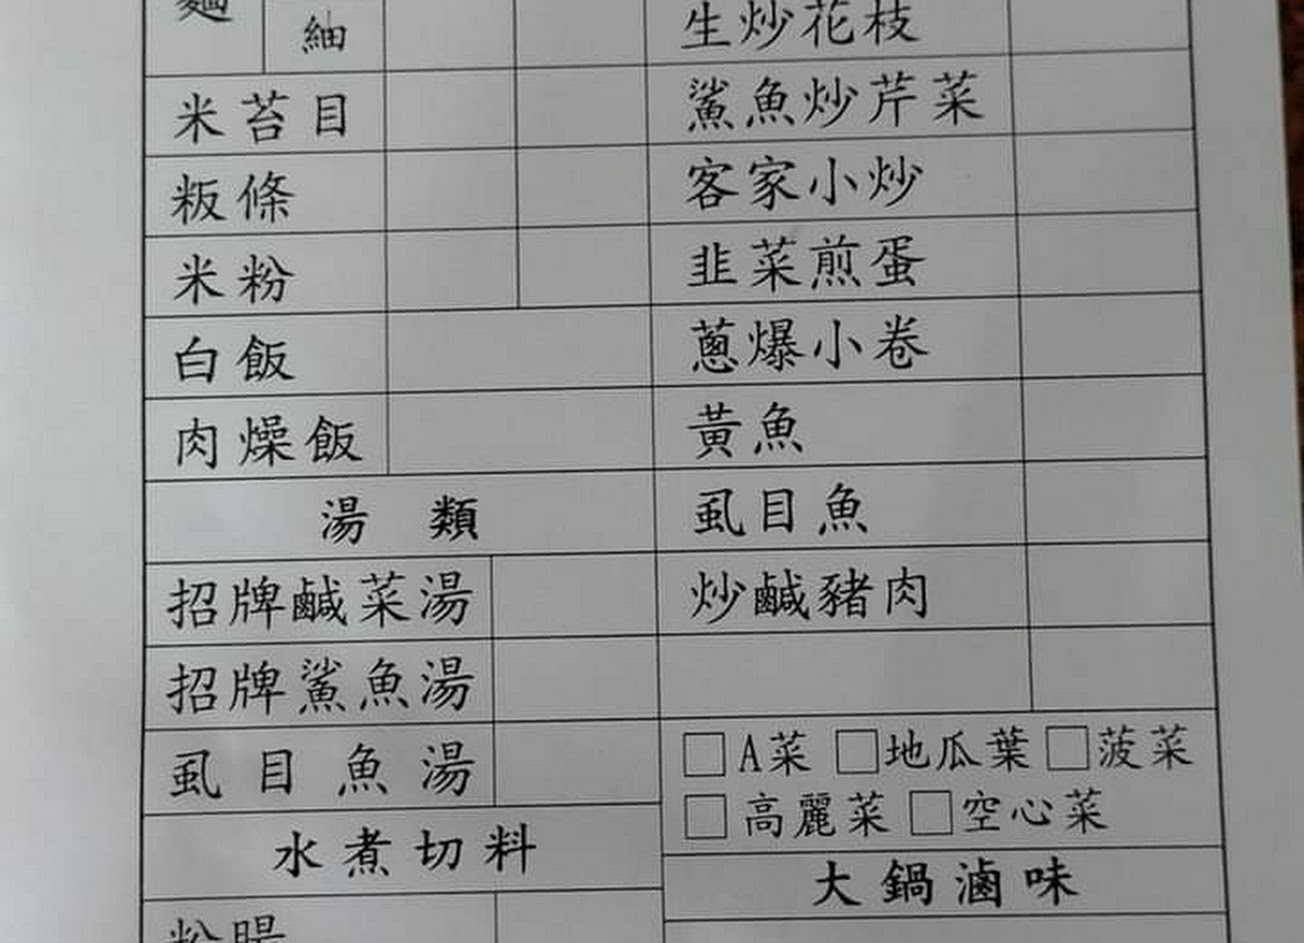 麵
細
米苔目
粄條
米粉
白飯
肉燥飯
湯 類
招牌鹹菜湯
招牌鯊魚湯
虱目魚湯
水煮切料
粉腸
生炒花枝
鯊魚炒芹菜
客家小炒
韭菜煎蛋
蔥爆小卷
黃魚
虱目魚
炒鹹豬肉
□A菜 □地瓜葉 □菠菜
□高麗菜 □空心菜
大鍋滷味